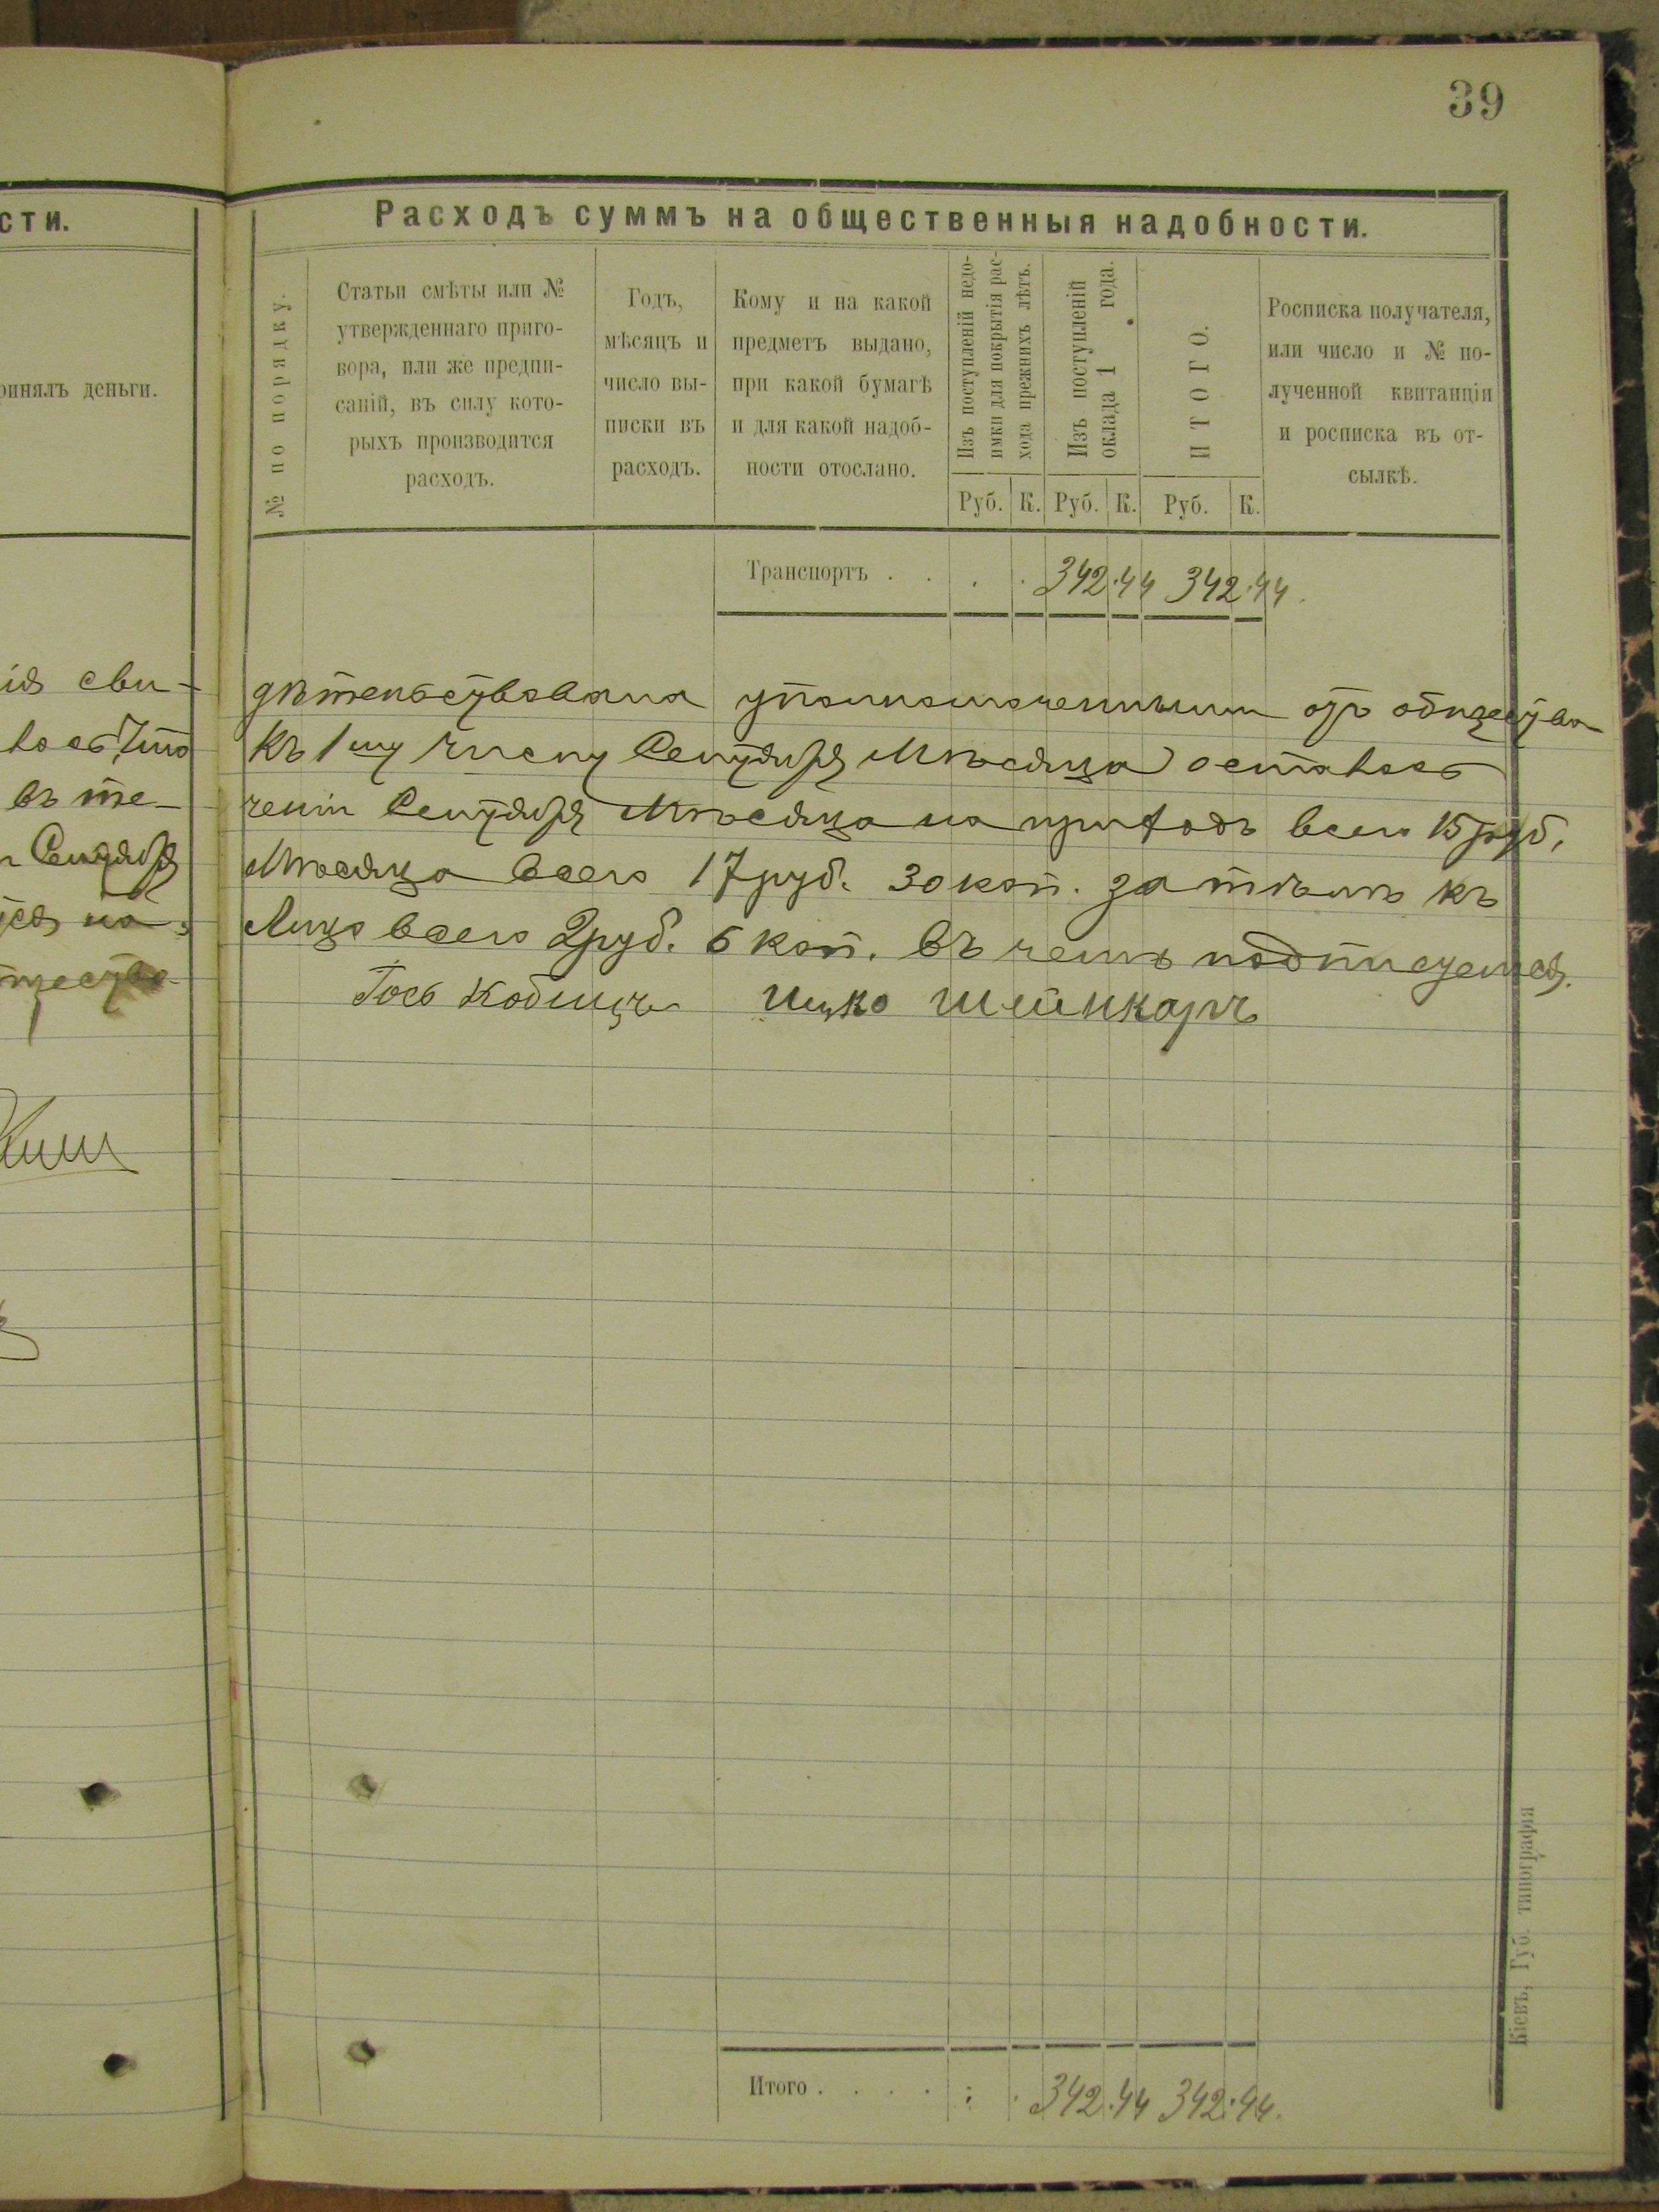 39
сти.
ринялъ деньги.
Расходъ суммъ на общественныя надобности.
№ по порядку.
Статьи смѣты или №
утвержденнаго приго-
вора, или же предпи-
саній, въ силу кото-
рыхъ производится
расходъ.
Годъ,
мѣсяцъ и
число вы-
писки въ
расходъ.
Кому и на какой
предметъ выдано,
при какой бумагѣ
и для какой надоб-
ности отослано.
Изъ поступленій недо-
имки для покрытія рас-
хода прежнихъ лѣтъ.
Изъ поступленій
оклада 1 года.
ИТОГО.
Росписка получателя,
или число и № по-
лученной квитанціи
и росписка въ от-
сылкѣ.
Руб. К. Руб. К. Руб. К.
Транспортъ . . . . 342.44 342.44.
ія сви-
дѣтельствована уполномоченными отъ общества
лось, что
Къ 1му числу Сентября Мѣсяца осталось
въ те-
ченіи Сентября Мѣсяца на приходъ всего 15 руб.
Сентября
Мѣсяца всего 17 руб. 30 коп. за тѣмъ къ
на
Лицо всего 2 руб. 6 коп. въ чемъ подписуемся.
Іось Ицко Шейнкаръ
Итого . . . . : . 342.44 342.44.
Кіевъ, Губ. типографія